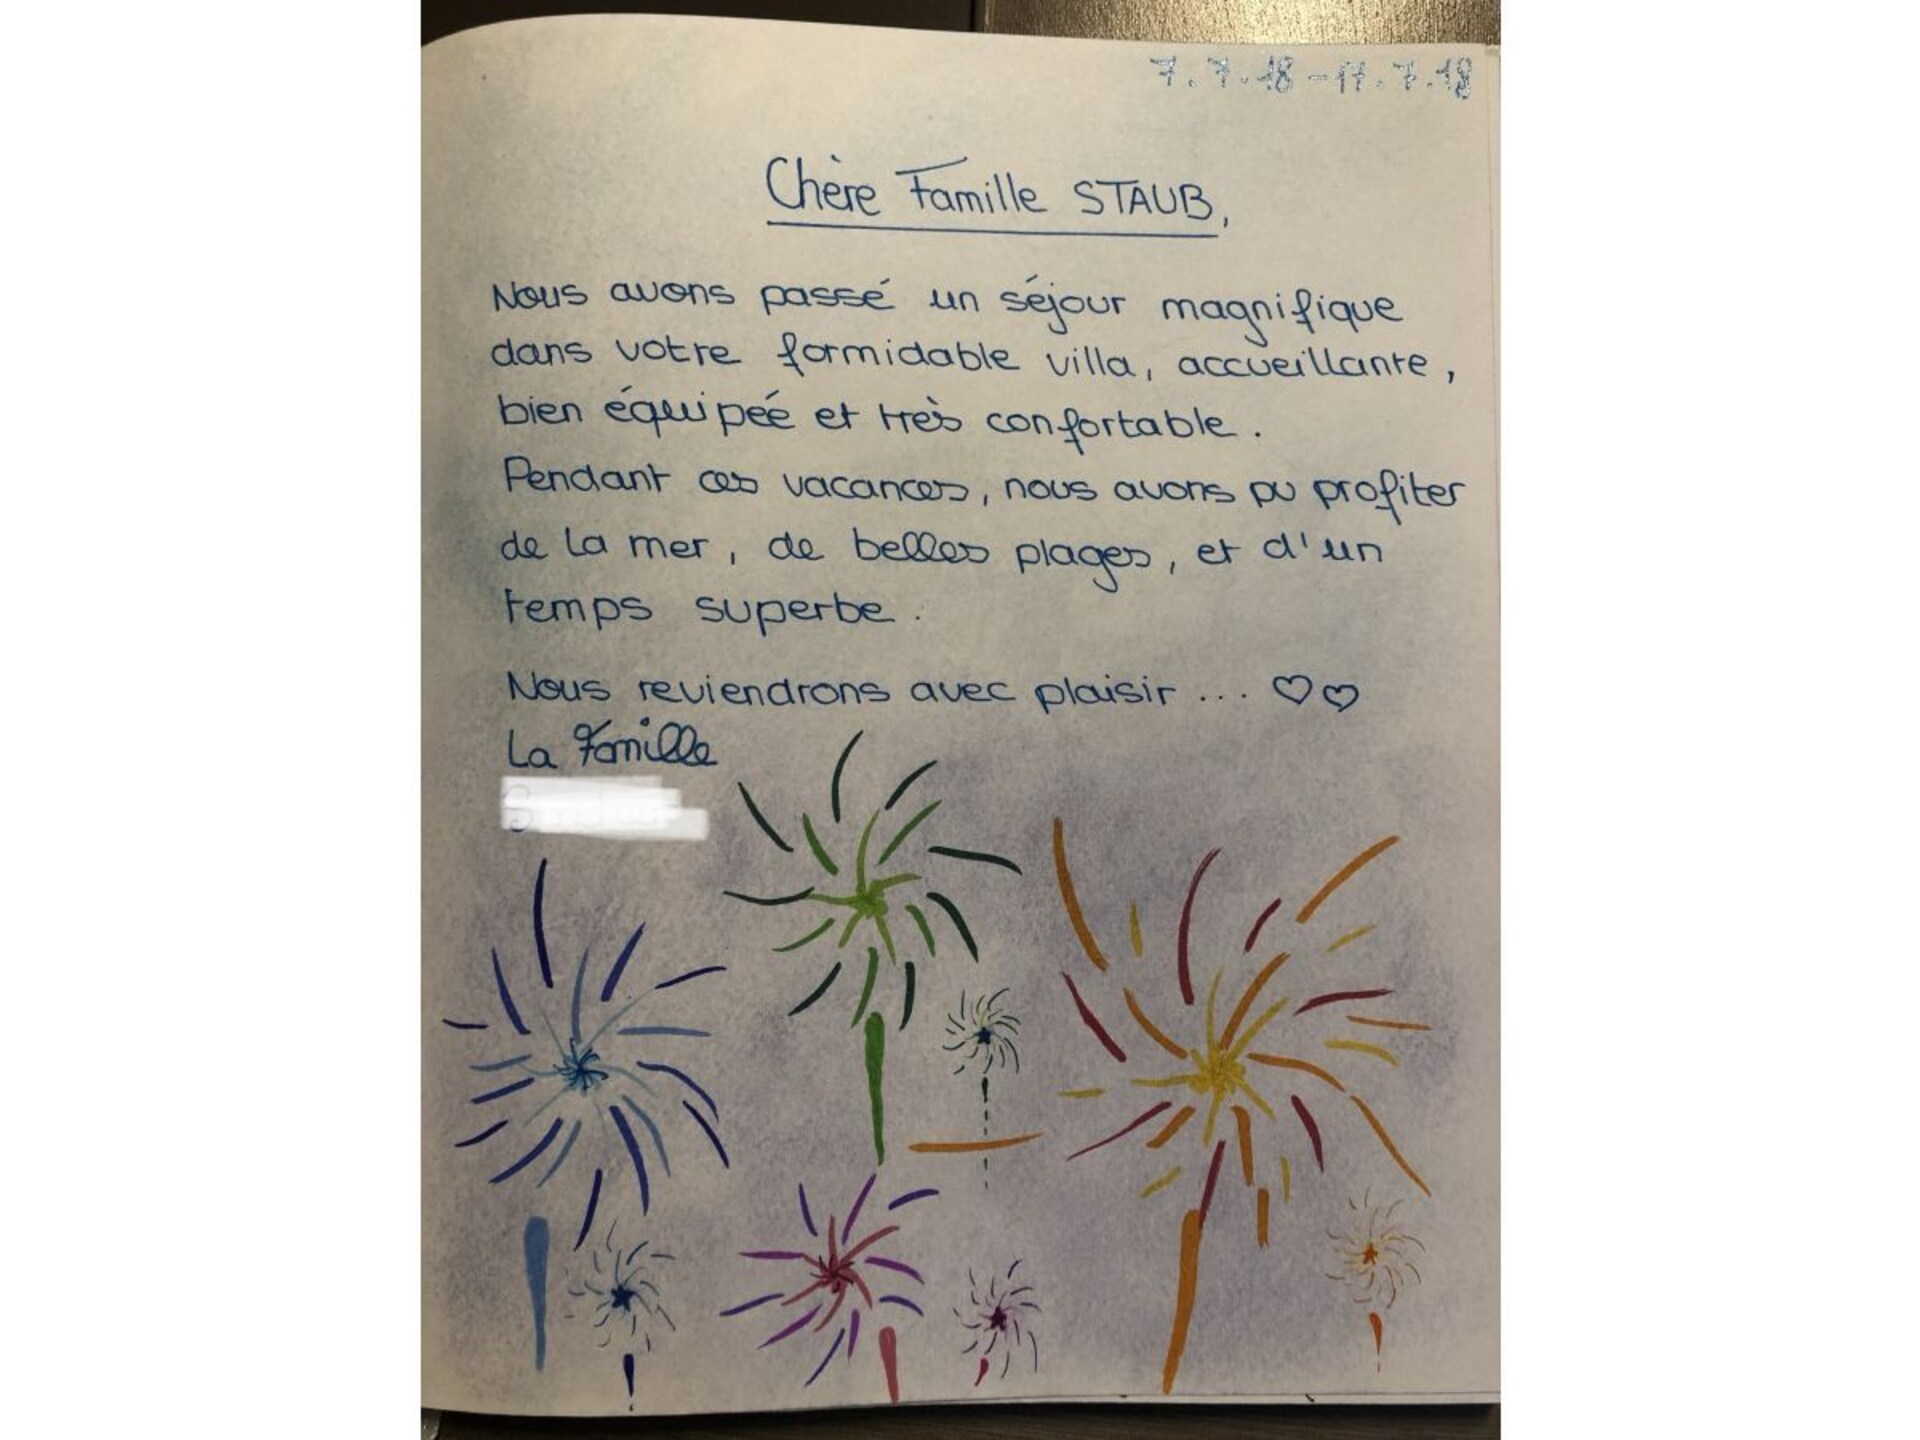 7.7.18-17.7.18
Chère Famille STAUB,
Nous avons passé un séjour magnifique
dans votre formidable villa, accueillante,
bien équipée et très confortable.
Pendant ces vacances, nous avons pu profiter
de la mer, de belles plages, et d'un
temps superbe.
Nous reviendrons avec plaisir... ♡♡
La Famille